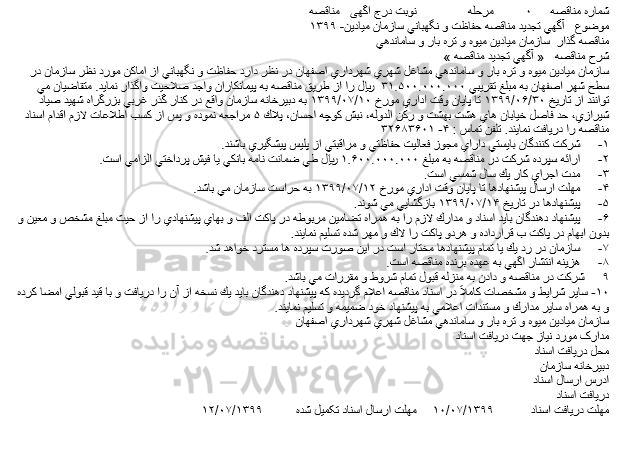 شماره مناقصه ۰ مرحله نوبت درج اگهی مناقصه
موضوع آگهي تجديد مناقصه حفاظت و نگهباني سازمان ميادين- ۱۳۹۹
مناقصه گذار سازمان ميادين ميوه و تره بار و ساماندهي
شرح مناقصه « آگهي تجديد مناقصه »
سازمان ميادين ميوه و تره بار و ساماندهي مشاغل شهري شهرداري اصفهان در نظر دارد حفاظت و نگهباني از اماكن مورد نظر سازمان در
سطح شهر اصفهان به مبلغ تقريبي ۳۱.۵۰۰.۰۰۰.۰۰۰ ريال را از طريق مناقصه به پيمانكاران واجد صلاحيت واگذار نمايد. متقاضيان مي
توانند از تاريخ ۱۳۹۹/۰۶/۳۰ تا پايان وقت اداري مورخ ۱۳۹۹/۰۷/۱۰ به دبيرخانه سازمان واقع در كنار گذر غربي بزرگراه شهيد صياد
شيرازي، حد فاصل خيابان هاي هشت بهشت و ركن الدوله، نبش كوچه احسان، پلاك ۵ مراجعه نموده و پس از كسب اطلاعات لازم اقدام اسناد
مناقصه را دريافت نمايند. تلفن تماس : ۴- ۳۲۶۸۳۶۰۱
۱- شركت كنندگان بايستي داراي مجوز فعاليت حفاظتي و مراقبتي از پليس پيشگيري باشند.
۲- ارائه سپرده شركت در مناقصه به مبلغ ۱.۶۰۰.۰۰۰.۰۰۰ ريال طي ضمانت نامه بانكي يا فيش پرداختي الزامي است.
۳- مدت اجراي كار يك سال شمسي است.
۴- مهلت ارسال پيشنهادها تا پايان وقت اداري مورخ ۱۳۹۹/۰۷/۱۲ به حراست سازمان مي باشد.
۵- پيشنهادها در تاريخ ۱۳۹۹/۰۷/۱۴ بازگشايي مي شوند.
۶- پيشنهاد دهندگان بايد اسناد و مدارك لازم را به همراه تضامين مربوطه در پاكت الف و بهاي پيشنهادي را از حيث مبلغ مشخص و معين و
بدون ابهام در پاكت ب قرارداده و هردو پاكت را لاك و مهر شده تسليم نمايند.
۷- سازمان در رد يك يا تمام پيشنهادها مختار است در اين صورت سپرده ها مسترد خواهد شد.
۸- هزينه انتشار آگهي به عهده برنده مناقصه است.
۹ شركت در مناقصه و دادن به منزله قبول تمام شروط و مقررات مي باشد.
۱۰- ساير شرايط و مشخصات كاملاً در اسناد مناقصه اعلام گرديده كه پيشنهاد دهندگان بايد يك نسخه از آن را دريافت و با قيد قبولي امضا كرده
و به همراه ساير مدارك و مستندات اعلامي به پيشنهاد خود ضميمه و تسليم نمايند.
سازمان ميادين ميوه و تره بار و ساماندهي مشاغل شهري شهرداري اصفهان
مدارک مورد نیاز جهت دریافت اسناد
محل دریافت اسناد
دبیرخانه سازمان
ادرس ارسال اسناد
دریافت اسناد
مهلت دریافت اسناد ۱۰/۰۷/۱۳۹۹ مهلت ارسال اسناد تکمیل شده ۱۲/۰۷/۱۳۹۹
پایگاه اطلاع رسانی مناقصه و مزایده
۰۲۱-۸۸۳۴۹۶۷۰-۵